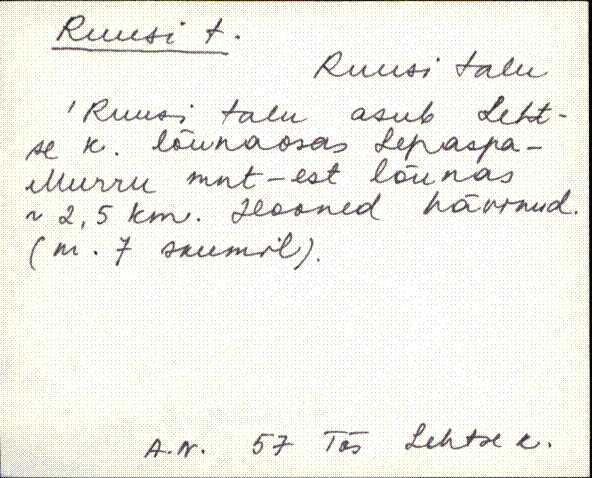 Ruusi t.
Ruusi talu
'Ruusi talu asub Leht-
se k. lõunaosas Lepaspa-
Murru mnt-est lõunas
~ 2,5 km. Hooned hävinud.
(nr. 7 skeemil).
A.N. 57 Tõs Lehtse k.